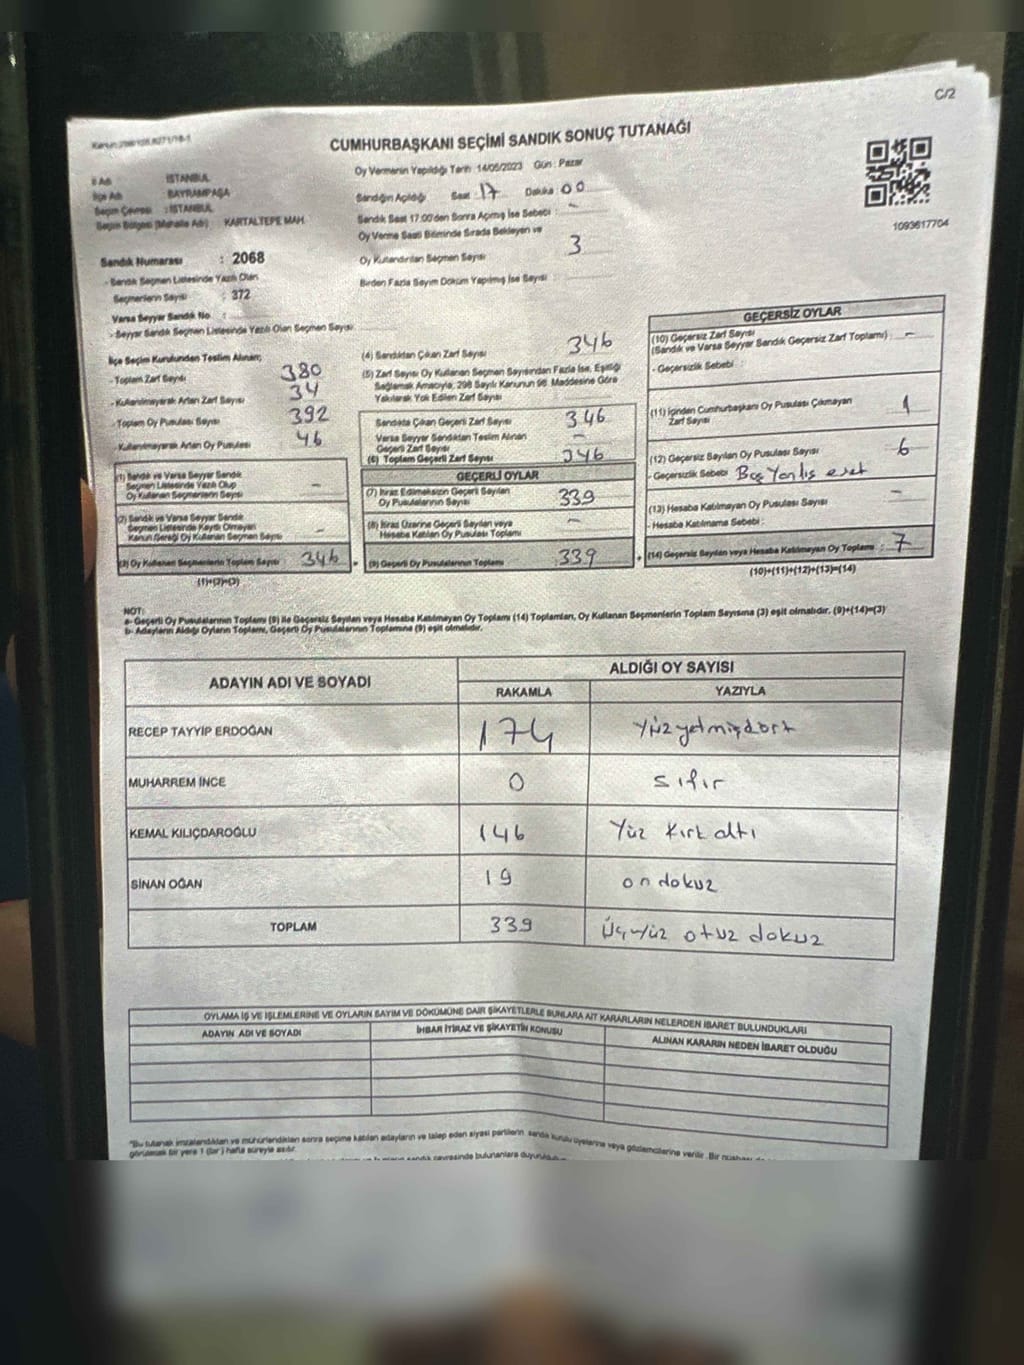 C/2
CUMHURBAŞKANI SEÇİMİ SANDIK SONUÇ TUTANAĞI
İl Adı : İSTANBUL
İlçe Adı : BAYRAMPAŞA
Seçim Çevresi : İSTANBUL
Seçim Bölgesi (Mahalle Adı) : KARTALTEPE MAH.
Sandık Numarası : 2068
- Sandık Seçmen Listesinde Yazılı Olan
Seçmenlerin Sayısı : 372
Varsa Seyyar Sandık No :
- Seyyar Sandık Seçmen Listesinde Yazılı Olan Seçmen Sayısı:
Oy Vermenin Yapıldığı Tarih : 14/05/2023 Gün : Pazar
Sandığın Açıldığı Saat : 17 Dakika : 00
Sandık Saat 17:00'den Sonra Açılmış İse Sebebi : -
Oy Verme Saati Bitiminde Sırada Bekleyen ve
Oy Kullandırılan Seçmen Sayısı 3
Birden Fazla Sayım Döküm Yapılmış İse Sayısı :
1093617704
İlçe Seçim Kurulundan Teslim Alınan;
- Toplam Zarf Sayısı 380
- Kullanılmayarak Artan Zarf Sayısı 34
- Toplam Oy Pusulası Sayısı 392
- Kullanılmayarak Artan Oy Pusulası 46
(1) Sandık ve Varsa Seyyar Sandık
Seçmen Listesinde Yazılı Olup
Oy Kullanan Seçmenlerin Sayısı -
(2) Sandık ve Varsa Seyyar Sandık
Seçmen Listesinde Kaydı Olmayan
Kanun Gereği Oy Kullanan Seçmen Sayısı -
(3) Oy Kullanan Seçmenlerin Toplam Sayısı : 346
(1)+(2)=(3)
(4) Sandıktan Çıkan Zarf Sayısı 346
(5) Zarf Sayısı Oy Kullanan Seçmen Sayısından Fazla İse, Eşitliği
Sağlamak Amacıyla, 298 Sayılı Kanunun 98. Maddesine Göre
Yakılarak Yok Edilen Zarf Sayısı
Sandıkta Çıkan Geçerli Zarf Sayısı 346
Varsa Seyyar Sandıktan Teslim Alınan
Geçerli Zarf Sayısı -
(6) Toplam Geçerli Zarf Sayısı 346
GEÇERLİ OYLAR
(7) İtiraz Edilmeksizin Geçerli Sayılan
Oy Pusulalarının Sayısı 339
(8) İtiraz Üzerine Geçerli Sayılan veya
Hesaba Katılan Oy Pusulası Toplamı -
(9) Geçerli Oy Pusulalarının Toplamı : 339
GEÇERSİZ OYLAR
(10) Geçersiz Zarf Sayısı
(Sandık ve Varsa Seyyar Sandık Geçersiz Zarf Toplamı) : -
- Geçersizlik Sebebi :
(11) İçinden Cumhurbaşkanı Oy Pusulası Çıkmayan
Zarf Sayısı 1
(12) Geçersiz Sayılan Oy Pusulası Sayısı 6
- Geçersizlik Sebebi : Boş Yanlış evet
(13) Hesaba Katılmayan Oy Pusulası Sayısı -
- Hesaba Katılmama Sebebi :
(14) Geçersiz Sayılan veya Hesaba Katılmayan Oy Toplamı : 7
(10)+(11)+(12)+(13)=(14)
NOT:
a- Geçerli Oy Pusulalarının Toplamı (9) ile Geçersiz Sayılan veya Hesaba Katılmayan Oy Toplamı (14) Toplamları, Oy Kullanan Seçmenlerin Toplam Sayısına (3) eşit olmalıdır. (9)+(14)=(3)
b- Adayların Aldığı Oyların Toplamı, Geçerli Oy Pusulalarının Toplamına (9) eşit olmalıdır.
ADAYIN ADI VE SOYADI
ALDIĞI OY SAYISI
RAKAMLA YAZIYLA
RECEP TAYYİP ERDOĞAN 174 Yüzyetmişdört
MUHARREM İNCE 0 sıfır
KEMAL KILIÇDAROĞLU 146 Yüz kırk altı
SİNAN OĞAN 19 on dokuz
TOPLAM 339 Üçyüz otuz dokuz
OYLAMA İŞ VE İŞLEMLERİNE VE OYLARIN SAYIM VE DÖKÜMÜNE DAİR ŞİKAYETLERLE BUNLARA AİT KARARLARIN NELERDEN İBARET BULUNDUKLARI
ADAYIN ADI VE SOYADI
İHBAR İTİRAZ VE ŞİKAYETİN KONUSU
ALINAN KARARIN NEDEN İBARET OLDUĞU
"Bu tutanak imzalandıktan ve mühürlendikten sonra seçime katılan adayların ve talep eden siyasi partilerin sandık kurulu üyelerine veya gözlemcilerine verilir. Bir nüshası
görülecek bir yere 1 (bir) hafta süreyle asılır.
sandık çevresinde bulunanlara